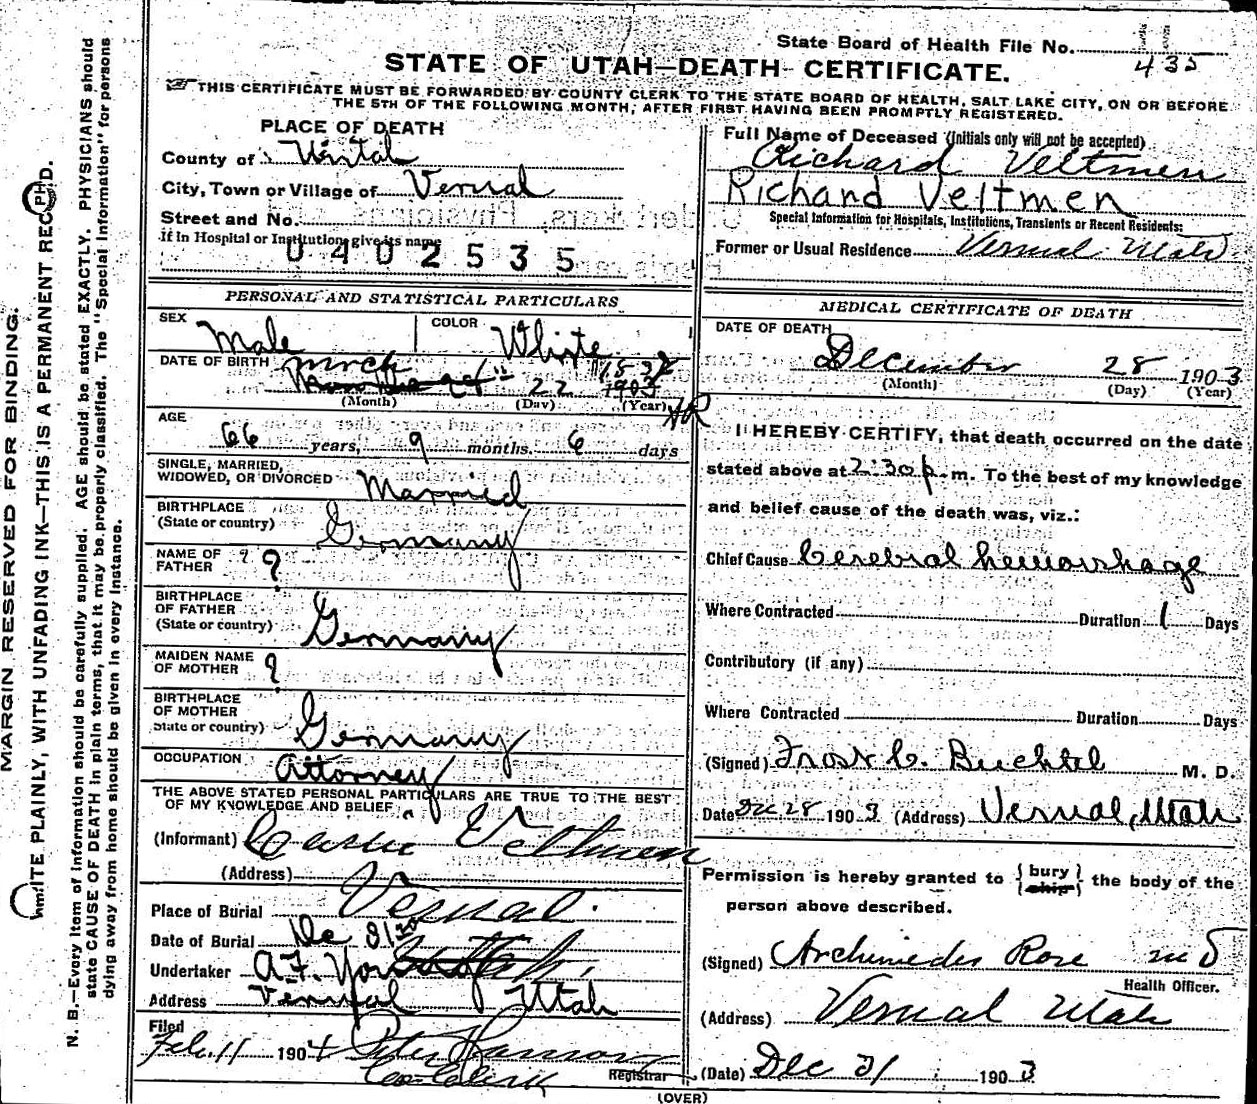 State Board of Health File No. 11
435
STATE OF UTAH—DEATH CERTIFICATE.
THIS CERTIFICATE MUST BE FORWARDED BY COUNTY CLERK TO THE STATE BOARD OF HEALTH, SALT LAKE CITY, ON OR BEFORE
THE 5TH OF THE FOLLOWING MONTH, AFTER FIRST HAVING BEEN PROMPTLY REGISTERED.
MARGIN RESERVED FOR BINDING.
WRITE PLAINLY, WITH UNFADING INK—THIS IS A PERMANENT RECORD.
N. B.—Every item of information should be carefully supplied. AGE should be stated EXACTLY. PHYSICIANS should
state CAUSE OF DEATH in plain terms, that it may be properly classified. The "Special Information" for persons
dying away from home should be given in every instance.
PLACE OF DEATH
County of Uintah
City, Town or Village of Vernal
Street and No.
If in Hospital or Institution give its name
0402535
PERSONAL AND STATISTICAL PARTICULARS
SEX Male COLOR White
DATE OF BIRTH March 22 1837
1903
(Month) (Day) (Year)
AGE 66 years, 9 months. 6 days
SINGLE, MARRIED,
WIDOWED, OR DIVORCED Married
BIRTHPLACE
(State or country) Germany
NAME OF
FATHER ? ?
BIRTHPLACE
OF FATHER
(State or country) Germany
MAIDEN NAME
OF MOTHER ?
BIRTHPLACE
OF MOTHER
State or country) Germany
OCCUPATION Attorney
THE ABOVE STATED PERSONAL PARTICULARS ARE TRUE TO THE BEST
OF MY KNOWLEDGE AND BELIEF
(Informant) Veltmen
(Address)
Place of Burial Vernal.
Date of Burial Dec 31
Undertaker A.F. 
Address Vernal Utah
Filed
Feb. 11 1904 Peter Hanson
Co Clerk Registrar
Full Name of Deceased (Initials only will not be accepted)
Richard Veltmen
Richard Veltmen
Special Information for Hospitals, Institutions, Transients or Recent Residents:
Former or Usual Residence Vernal Utah
MEDICAL CERTIFICATE OF DEATH
DATE OF DEATH
December 28 1903
(Month) (Day) (Year)
I HEREBY CERTIFY, that death occurred on the date
stated above at 2:30 p. m. To the best of my knowledge
and belief cause of the death was, viz.:
Chief Cause Cerebral hemorrhage
Where Contracted Duration 1 Days
Contributory (if any)
Where Contracted Duration Days
(Signed) C. Buchtel M. D.
Date Dec 28 1903 (Address) Vernal, Utah
Permission is hereby granted to { bury } the body of the
{ ship }
person above described.
(Signed) Archimedes Rose M D
Health Officer.
(Address) Vernal Utah
(Date) Dec 31 1903
(OVER)